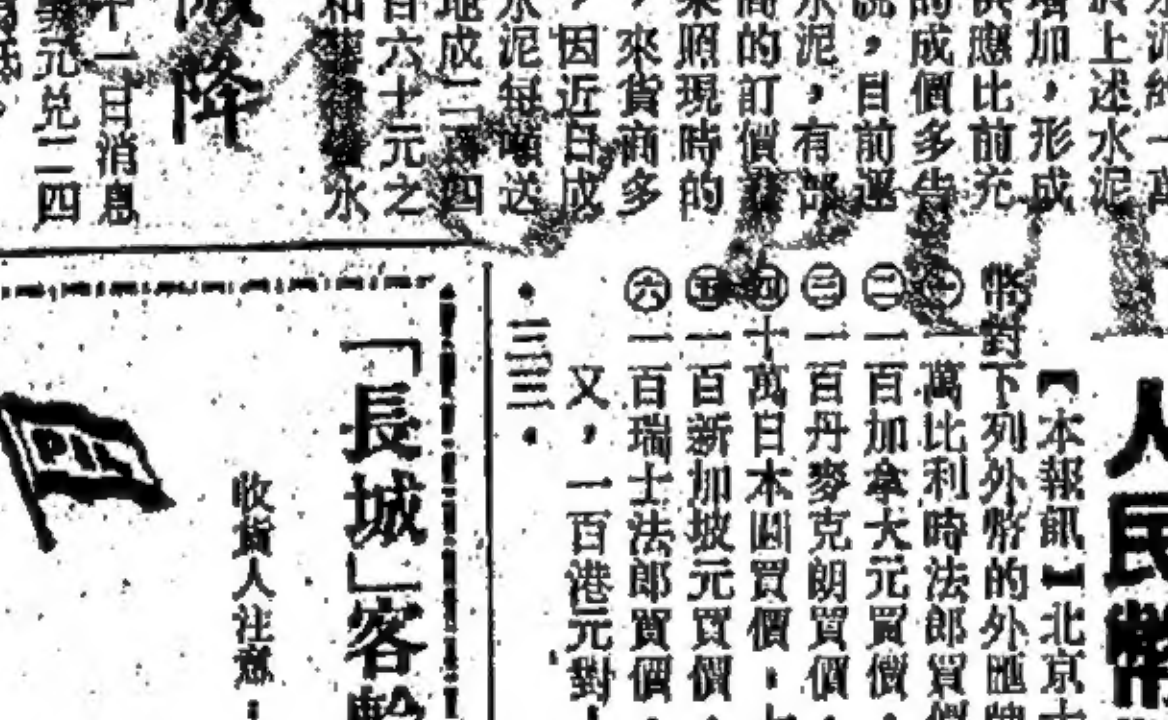 於上述水泥
增加，形成
供應比前充
的成價多告
說，目前運
水泥，有部
商的訂價
來照現時的
，來貨商多
，因近日成
水泥每噸送
地成二百四
百六十元之
水
減降
十一日消息
元兌二四
人民幣
【本報訊】北京
幣對下列外幣的外匯牌
㊀一萬比利時法郎買價
㊁一百加拿大元買價．
㊂一百丹麥克朗買價．
㊃十萬日本圓買價．七
㊄一百新加坡元買價．
㊅一百瑞士法郎買價．
又，一百港元對
．三三．
「長城」客輪
收貨人注意：
PIL